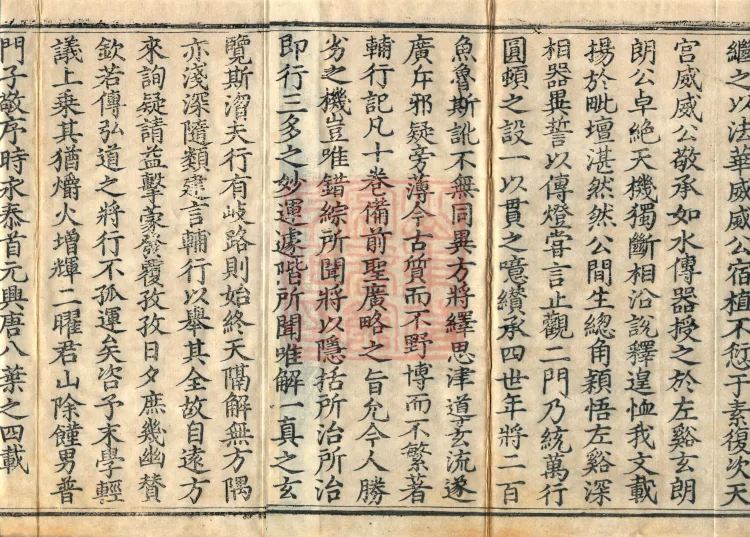 繼之以法華威威公宿植不愆于素復次天
宮威威公敬承如水傳器授之於左谿玄朗
朗公卓絶天機獨斷相沿說釋遑恤我文載
揚於毗壇湛然然公間生總角穎悟左谿深
相器異誓以傳燈嘗言止觀二門乃統萬行
圓頓之設一以貫之噫續承四世年將二百
魚魯斯訛不無同異方將繹思津導玄流遂
廣斥邪疑旁薄今古質而不野博而不繁著
輔行記凡十卷備前聖廣略之旨允今人勝
劣之機豈唯錯綜所聞將以隱括所治所治
即行三多之妙運遽階所聞唯解一真之玄
覽斯澑夫行有岐路則始終天隔解無方隅
亦淺深隨類建言輔行以舉其全故自遠方
來詢疑請益擊蒙發覆孜孜日夕庶幾幽賛
欽若傳弘道之將行不孤運矣咨予末學輕
議上乗其猶爝火増輝二曜君山除饉男普
門子敬序時永泰首元興唐八葉之四載